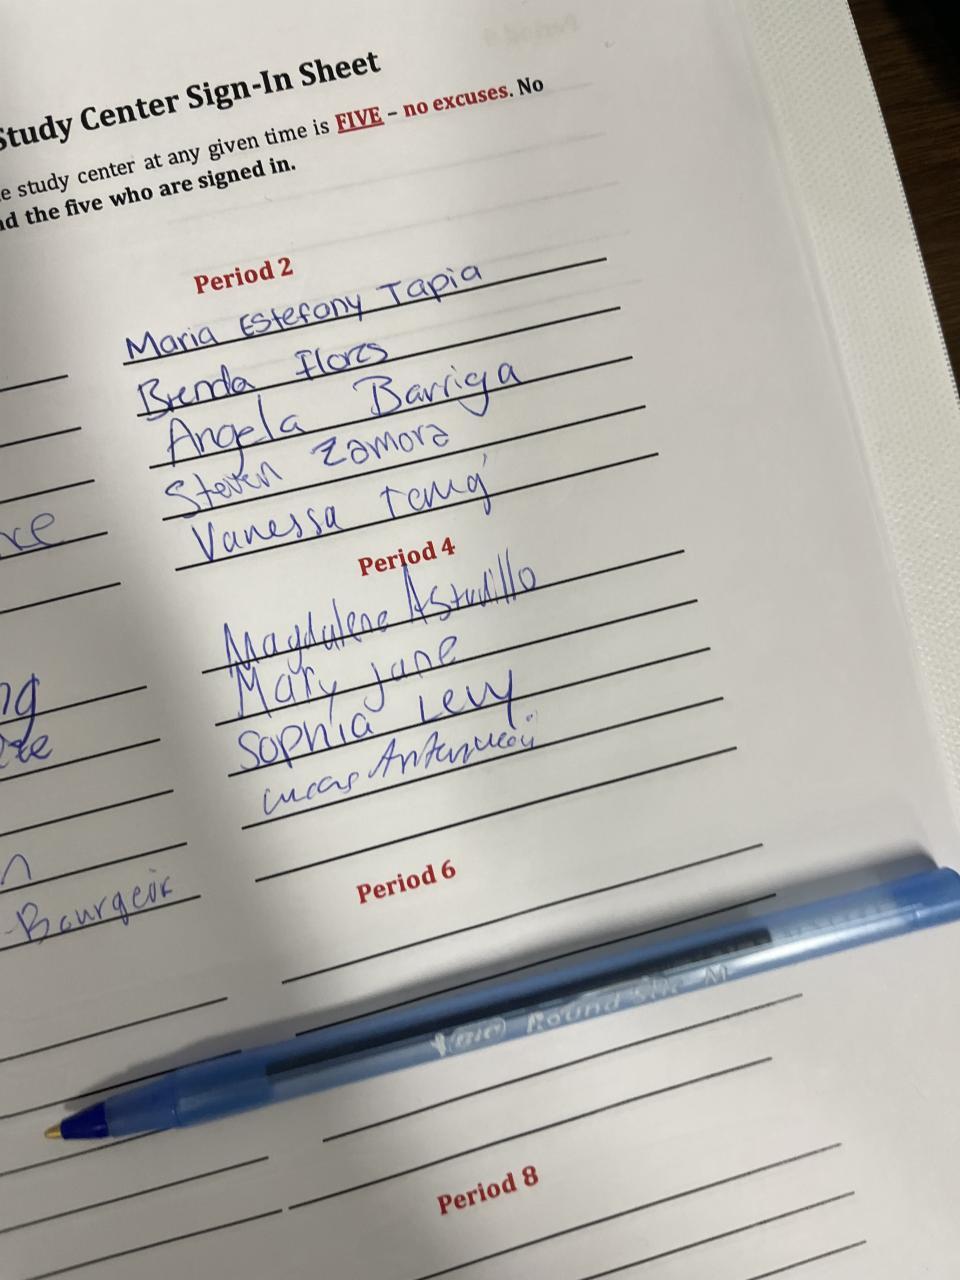 Study Center Sign-In Sheet
e study center at any given time is FIVE – no excuses. No
nd the five who are signed in.
Period 2
Maria Estefony Tapia
Brenda Flores
Angela Barriga
Steven Zamora
Vanessa
Period 4
Magdalene Astudillo
Mary Jane
Sophia Levy
Lucas
Bourgeois
Period 6
BIC Round Stic M
Period 8